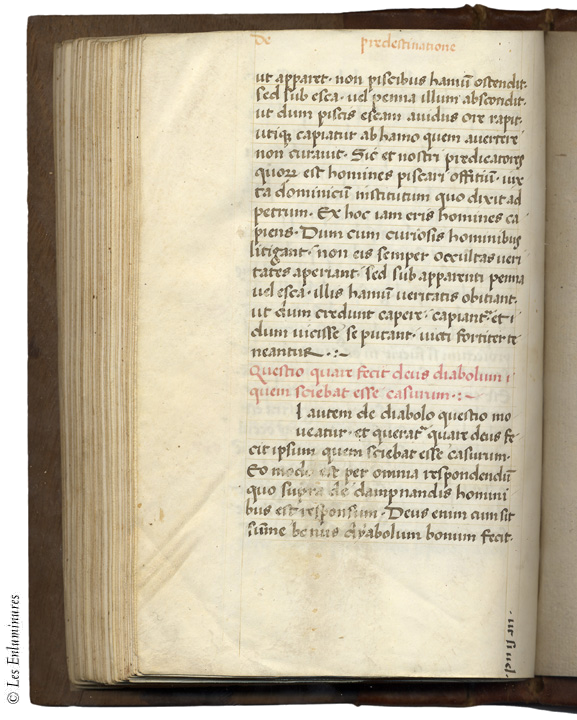 De predestinatione
ut apparet. non piscibus hamū ostendit.
sed sub esca. vel penna illum abscondit.
ut dum piscis escam avidus ore rapit.
utiqꝫ capiatur ab hamo quem avertere
non curavit. Sic et nostri predicatores
quoꝝ est homines piscari offitiū. iux
ta dominicū institutum quo dixit ad
petrum. Ex hoc iam eris homines ca
piens. Dum cum curiosis hominibus
litigant. non eis semper occultas veri
tates aperiant. sed sub apparenti penna
vel esca. illis hamū veritatis obitiant.
ut dum credunt capere. capiant᷑. et i
dum vicisse se putant. victi fortiter te
neantur .:~
Questio quare fecit deus diabolum i
quem sciebat esse casurum .:~
I autem de diabolo questio mo
veatur. et querat᷑ quare deus fe
cit ipsum quem sciebat esse casurum.
Eo modo est per omnia respondendū
quo supra de dampnandis homini
bus est responsum. Deus enim cum sit
sūme bonus dyabolum bonum fecit.
© Les Enluminures